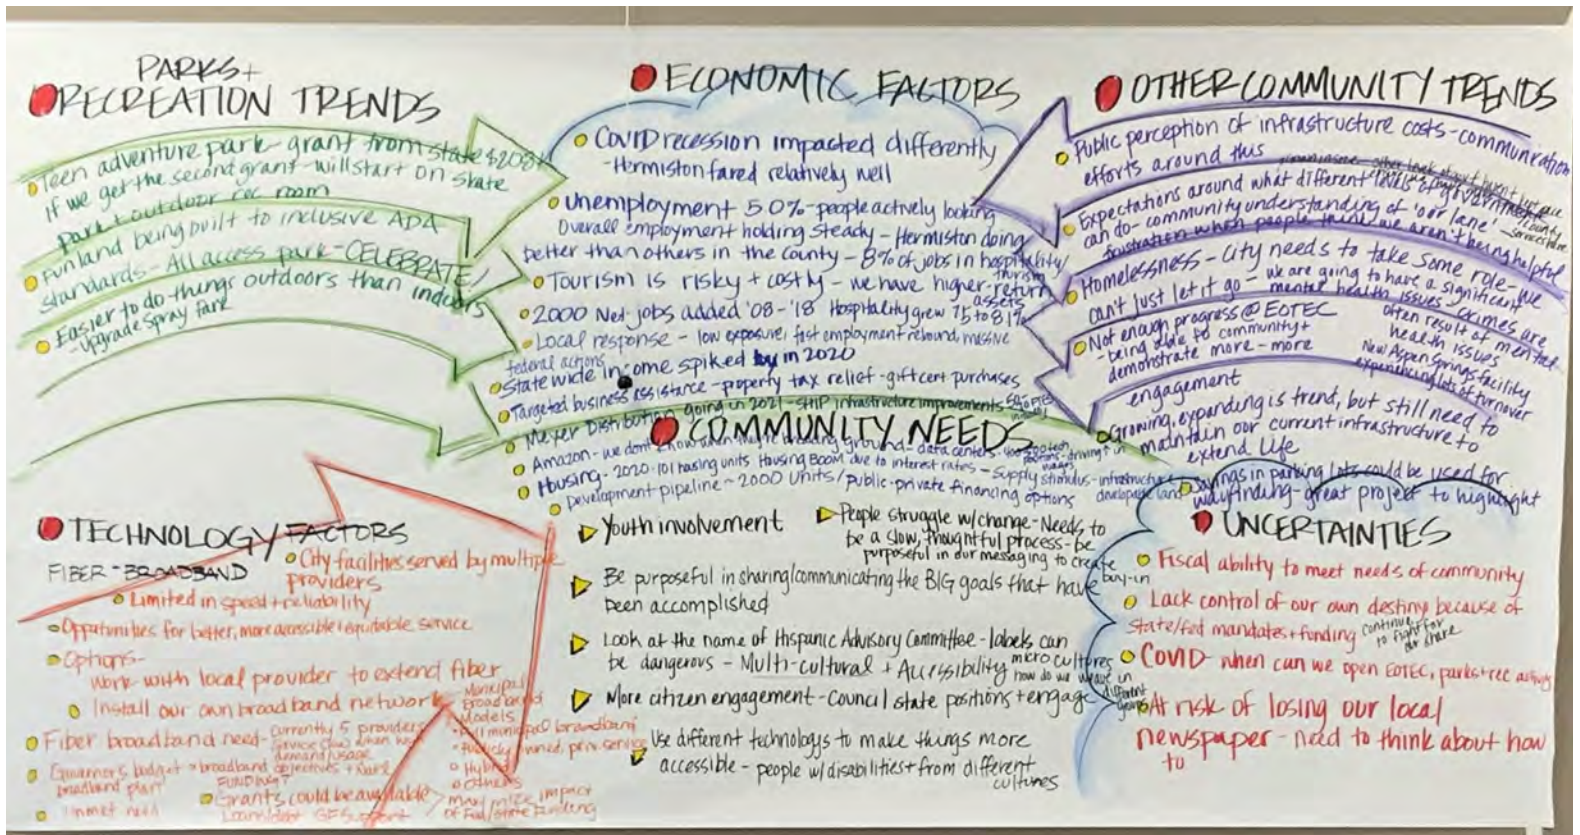 PARKS+
RECREATION TRENDS
Teen adventure park - grant from state $208k
If we get the second grant - will start on skate
park + outdoor rec room
Funland being built to inclusive ADA
standards - All access park - CELEBRATE
Easier to do things outdoors than indoors
- Upgrade Spray Park
ECONOMIC FACTORS
COVID recession impacted differently
- Hermiston fared relatively well
Unemployment 5.0% - people actively looking
Overall employment holding steady - Hermiston doing
better than others in the county - 8% of jobs in hospitality/
tourism
Tourism is risky + costly - we have higher return
assets
2000 Net jobs added '08 - '18 Hospitality grew 7.5 to 8.1%
Local response - low exposure, fast employment rebound, massive
federal actions
Statewide income spiked in 2020
Targeted business assistance - property tax relief - gift cert purchases
Meyer Distribution going in 2021 - SHIP infrastructure improvements
Amazon - we don't know when they're breaking ground - data centers - tech
positions - driving in
wages
Housing - 2020 - 101 housing units Housing BOOM due to interest rates - Supply stimulus - infrastructure
develop land
Development pipeline ~ 2000 units / public-private financing options
OTHER COMMUNITY TRENDS
Public perception of infrastructure costs - communication
efforts around this
Expectations around what different levels of government
can do - community understanding of 'our lane' -
county
services here
frustration when people think we aren't being helpful
Homelessness - City needs to take some role - we
can't just let it go - we are going to have a significant
mental health issues
crimes are
often result of mental
health issues
New Aspen Springs facility
experiencing lots of turnover
Not enough progress @ EOTEC
- being able to community +
demonstrate more - more
engagement
Growing, expanding is trend, but still need to
maintain our current infrastructure to
extend life
Savings in parking lots could be used for
wayfinding - great project to highlight
COMMUNITY NEEDS
Youth involvement
People struggle w/change - Needs to
be a slow, thoughtful process - be
purposeful in our messaging to create
buy-in
Be purposeful in sharing/communicating the BIG goals that have
been accomplished
Look at the name of Hispanic Advisory Committee - labels can
be dangerous - Multi-cultural + Accessibility
micro cultures
how do we weave in
different
groups
More citizen engagement - Council state positions + engage
Use different technologys to make things more
accessible - people w/disabilities + from different
cultures
TECHNOLOGY FACTORS
FIBER - BROADBAND
City facilities served by multiple
providers
Limited in speed + reliability
Opportunities for better, more accessible + equitable service
Options -
Work with local provider to extend fiber
Install our own broadband network
Municipal
Broadband
Models
Full municipal broadband
Publicly owned, priv. service
Hybrid
Others
Fiber broadband need - Currently 5 providers
service slow when high
demand/usage
Governor's budget + broadband objectives +
broadband plan
Unmet need
FUNDING
Grants could be available
Loan/debt GF Support
maximize impact
of Fed/State Funding
UNCERTAINTIES
Fiscal ability to meet needs of community
Lack control of our own destiny because of
state/fed mandates + funding
continue
to fight for
our share
COVID - when can we open EOTEC, parks + rec activity
At risk of losing our local
newspaper - need to think about how
to